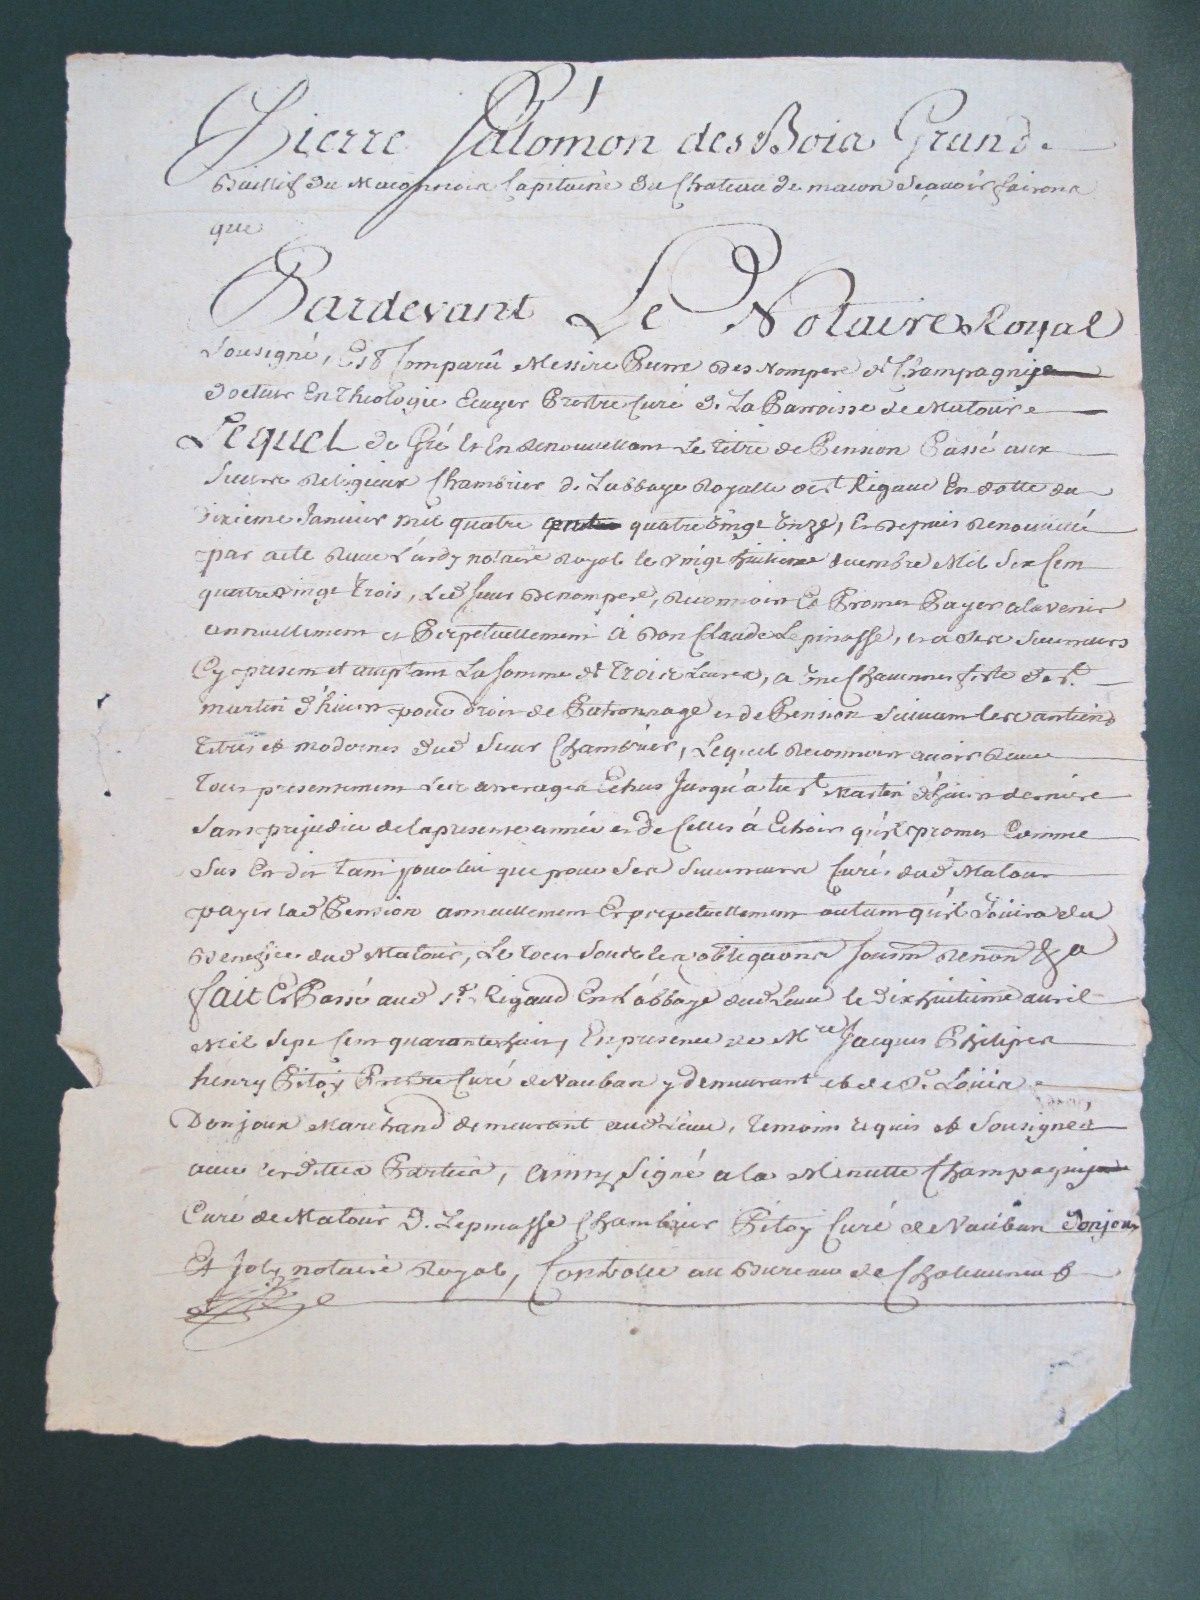 Pierre Salomon des Bois Grand
Baillif du Maconnois Capitaine du Chateau de macon scavoir faisons
que
Pardevant Le Notaire Royal
Sousigné, Est Comparû Messire Pierre des Nompere de Champagny
docteur En Theologie Ecuyer Prestre Curé de La Parroisse de Matour
Lequel de Gré et En Renouvellant Le titre de Pension Passé aux
Sieurs Religieux Chambrier de Labbaye Royalle de st Rigaud En datte du
dixieme Janvier mil quatre cent quatre vingt onze, Et depuis Renouvellé
par acte Receu notaire Royal le vingt huitieme decembre Mil Six Cent
quatre vingt trois, Led sieur denompere, Reconnoit Et Promet Payer alavenir
annuellement et Perpetuellement à Don Claude Lepinasse, et a ses successeurs
Cy present et acceptant La somme de trois Livres, a une Chacunne feste de st
martin d'hiver pour droit de Patronnage et de Pension suivant les antiens
titres et modernes dud sieur Chambrier, Lequel Reconnoit avoir Receu
tous presentement Les arrerages Echus Jusqu'a la st Martin d'hiver derniere
sans prejudice de la presente année et de Celles à Echoir qu'il promet Comme
sus Est dit tant pour lui que pour ses successeurs Curé dud Matour
payer lad Pension annuellement Et perpetuellement autant qu'il Joüira du
Benefice dud Matour, Le tout sous les obligations soumm Renon &a
fait Et Passé aud st Rigaud En L'abbaye dud Lieu le dixhuitieme avril
Mil Sept Cent quarante huit, En presence de Mre Jacques Philipes
henry Pitoy Prestre Curé de Vauban y demeurant et de Sr Loüis
Donjoux Marchand demeurant aud Lieu, temoins requis et Sousignés
avec lesdittes Parties, ainsy Signé a la Minutte Champagny
Curé de Matour D. Lepinasse Chambrier Pitoy Curé de Vauban Donjoux
Et Joly notaire Royal, Controllé au Bureau de Chateauneuf